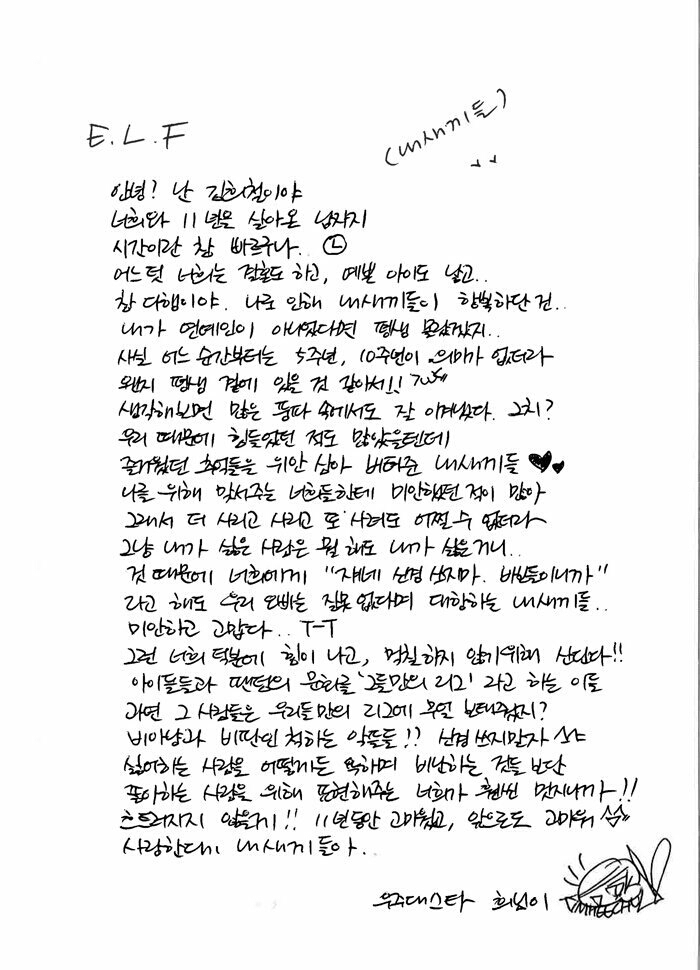 E.L.F
(내새끼들)
안녕? 난 김희철이야
너희와 11년을 살아온 남자지
시간이란 참 빠르구나..
어느덧 너희는 결혼도 하고, 예쁜 아이도 낳고..
참 다행이야. 나로 인해 내새끼들이 행복하단 건..
내가 연예인이 아니었다면 평생 몰랐겠지..
사실 어느 순간부터는 5주년, 10주년이 의미가 없더라
왠지 평생 곁에 있을 것 같아서!!
생각해보면 많은 풍파 속에서도 잘 이겨냈다. 그치?
우리 때문에 힘들었던 적도 많았을텐데
즐거웠던 추억들을 위안 삼아 버텨준 내새끼들 ♥♥
나를 위해 맞서주는 너희들한테 미안했던 적이 많아
그래서 더 사리고 사리고 또 사려도 어쩔 수 없더라
그냥 내가 싫은 사람은 뭘 해도 내가 싫은거니..
것 때문에 너희에게 "쟤네 신경 쓰지마. 바보들이니까"
라고 해도 우리 오빠는 잘못 없다며 대항하는 내새끼들..
미안하고 고맙다.. T-T
그런 너희 덕분에 힘이 나고, 멈칫하지 않기위해 산단다!!
아이돌들과 팬덤의 문화를 '그들만의 리그' 라고 하는 이들
과연 그 사람들은 우리들만의 리그에 무얼 보태주었지?
비아냥과 비판인 척하는 악플들!! 신경 쓰지말자
싫어하는 사람을 어떻게든 욕하며 비난하는 것들 보단
좋아하는 사람을 위해 표현해주는 너희가 훨씬 멋지니까!!
흐트러지지 않을게!! 11년동안 고마웠고, 앞으로도 고마워
사랑한다 내새끼들아..
우주대스타 희님이